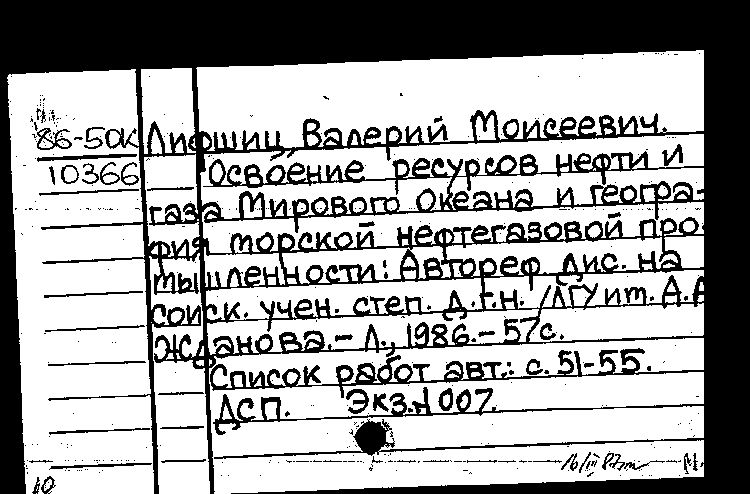 86-50К Лифшиц, Валерий Моисеевич.
10366 Освоение ресурсов нефти и
газа Мирового Океана и геогра-
фия морской нефтегазовой про-
мышленности: Автореф. дис. на
соиск. учен. степ. д.г.н. /ЛГУ им. А.А
Жданова.- Л., 1986.- 57с.
Список работ авт.: с. 51-55.
ДСП. Экз.N 007.
10